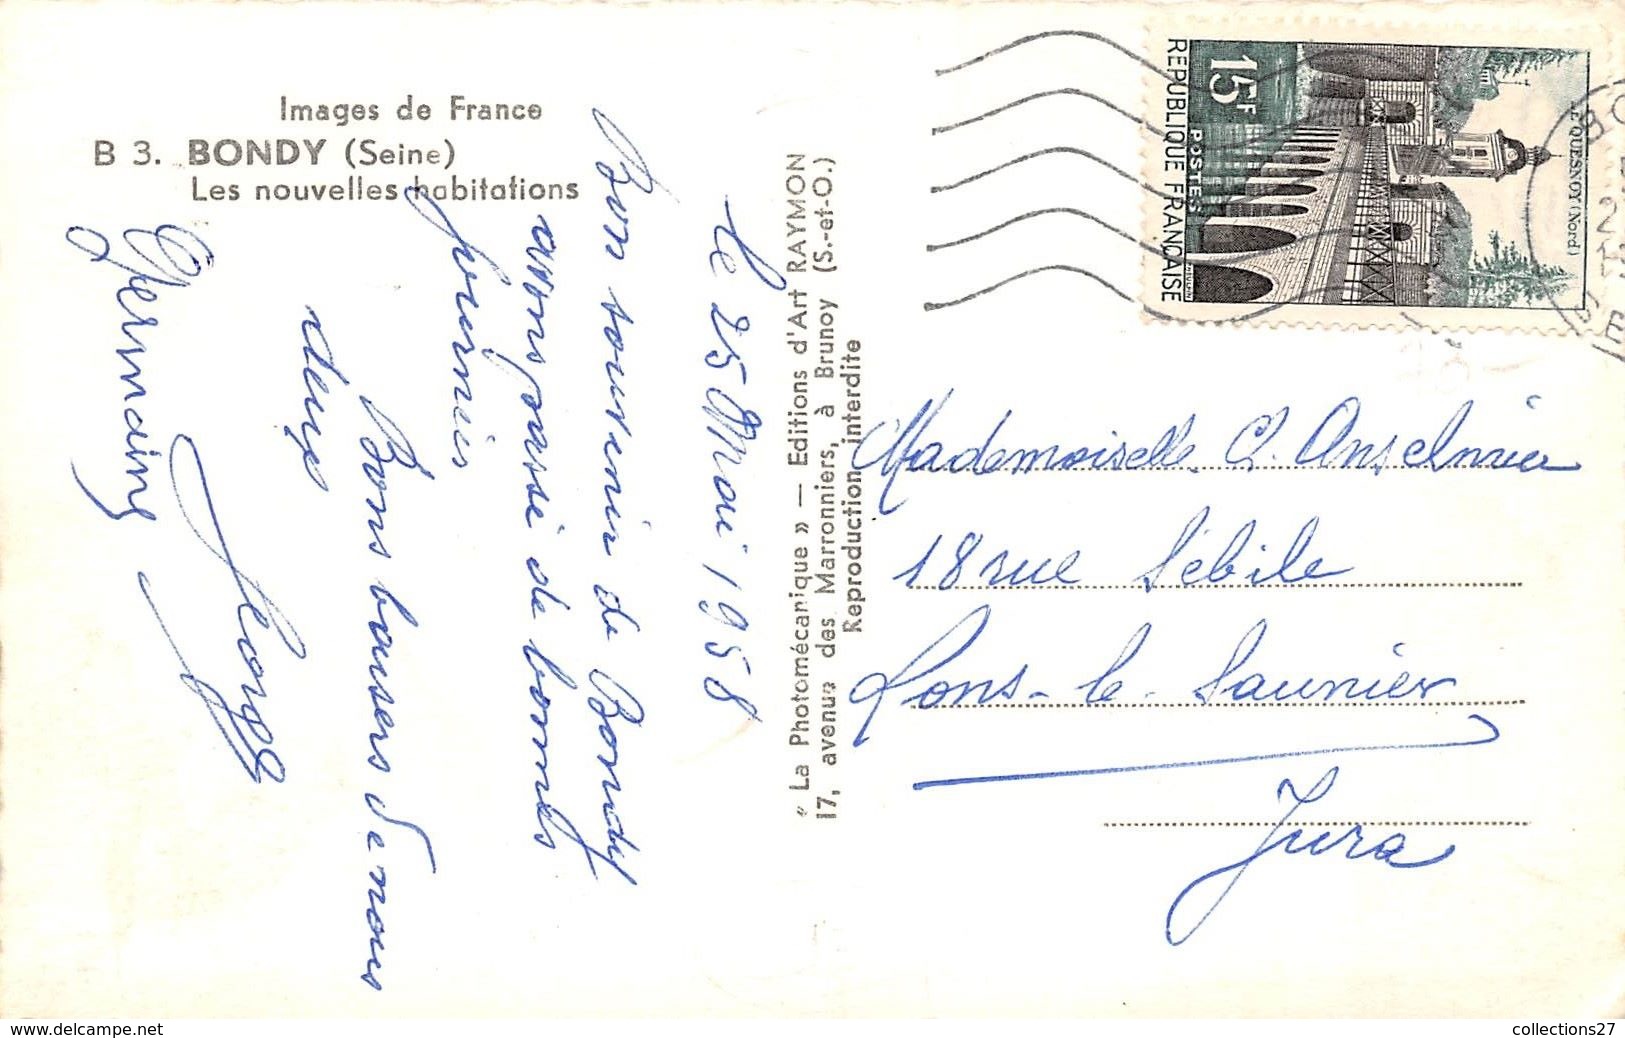 Images de France
B 3. BONDY (Seine)
Les nouvelles habitations
le 25 Mai 1958
Bon souvenir de Bondy
avons passé de bonnes
journées
Bons baisers de nous
deux
Germaine
« La Photomécanique » — Editions d'Art RAYMON
17, avenue des Marronniers, à Brunoy (S.-et-O.)
Reproduction interdite
15F
POSTES
REPUBLIQUE FRANÇAISE
LE QUESNOY (Nord)
Mademoiselle
18 rue Sébile
Lons-le-Saunier
Jura
collections27
www.delcampe.net